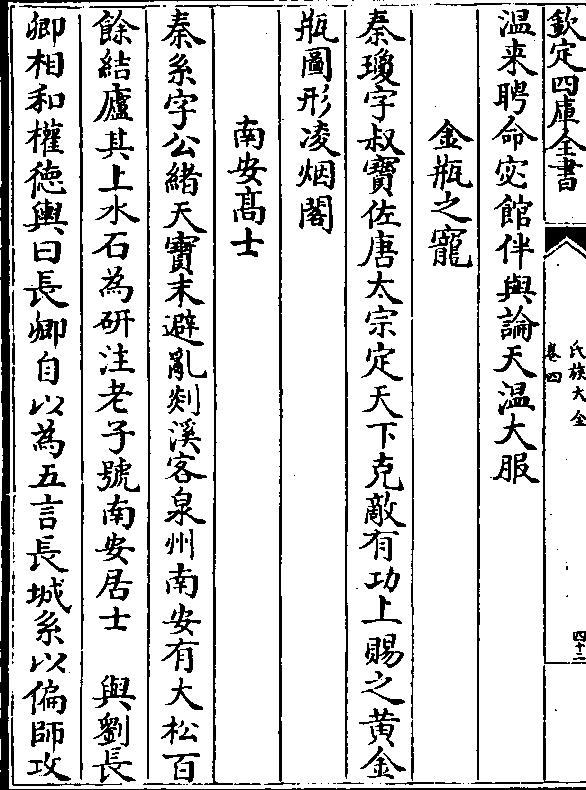 欽定四庫全書
氏族大全
卷四
四十二
温来聘命宓館伴與論天温大服
金瓶之寵
秦瓊字叔寶佐唐太宗定天下克敵有功上賜之黄金
瓶圖形凌烟閣
南安髙士
秦系字公緒天寶末避亂剡溪客泉州南安有大松百
餘結廬其上水石為研注老子號南安居士　與劉長
卿相和權徳輿曰長卿自以為五言長城系以偏師攻